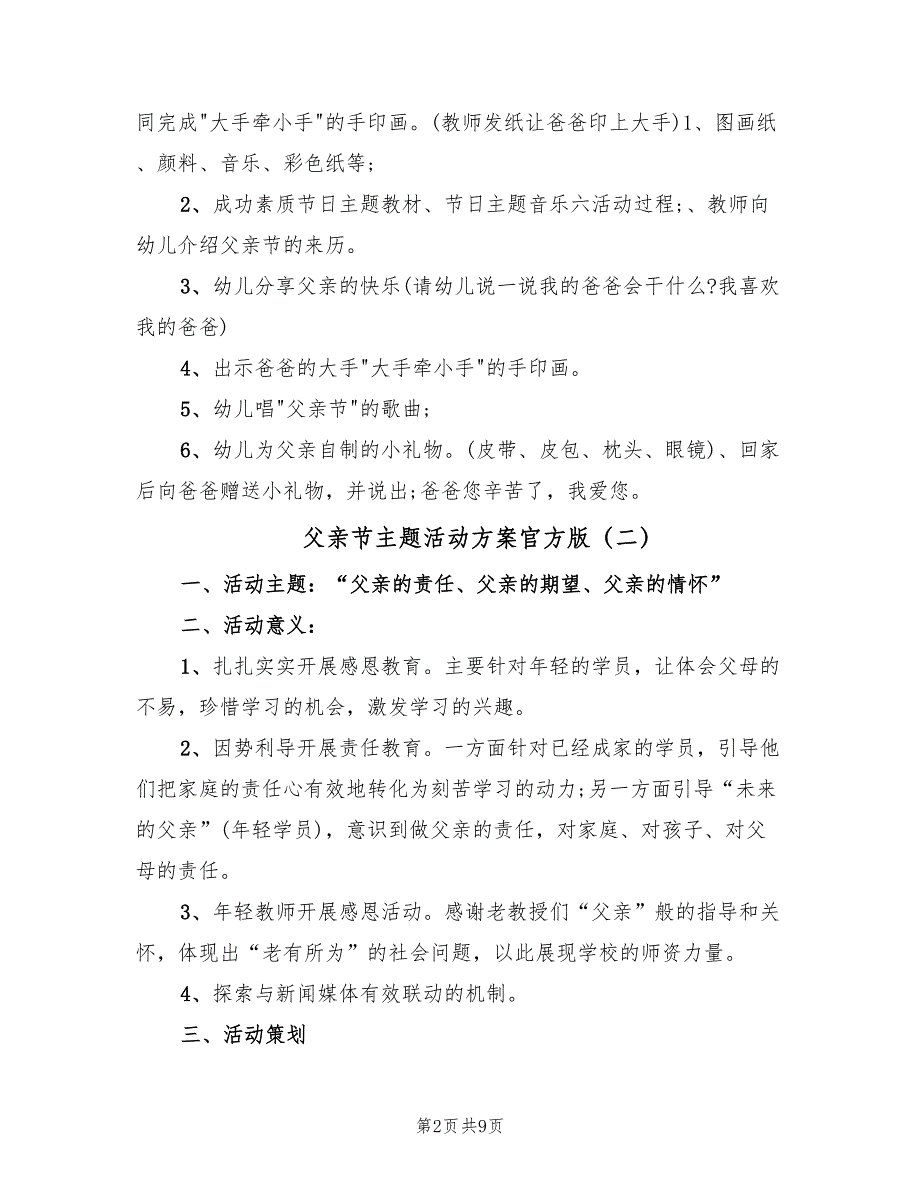 同完成"大手牵小手"的手印画。(教师发纸让爸爸印上大手)1、图画纸
、颜料、音乐、彩色纸等;
2、成功素质节日主题教材、节日主题音乐六活动过程;、教师向
幼儿介绍父亲节的来历。
3、幼儿分享父亲的快乐(请幼儿说一说我的爸爸会干什么?我喜欢
我的爸爸)
4、出示爸爸的大手"大手牵小手"的手印画。
5、幼儿唱"父亲节"的歌曲;
6、幼儿为父亲自制的小礼物。(皮带、皮包、枕头、眼镜)、回家
后向爸爸赠送小礼物，并说出;爸爸您辛苦了，我爱您。
父亲节主题活动方案官方版（二）
一、活动主题：“父亲的责任、父亲的期望、父亲的情怀”
二、活动意义：
1、扎扎实实开展感恩教育。主要针对年轻的学员，让体会父母的
不易，珍惜学习的机会，激发学习的兴趣。
2、因势利导开展责任教育。一方面针对已经成家的学员，引导他
们把家庭的责任心有效地转化为刻苦学习的动力;另一方面引导“未来
的父亲”(年轻学员)，意识到做父亲的责任，对家庭、对孩子、对父
母的责任。
3、年轻教师开展感恩活动。感谢老教授们“父亲”般的指导和关
怀，体现出“老有所为”的社会问题，以此展现学校的师资力量。
4、探索与新闻媒体有效联动的机制。
三、活动策划
第2页共9页